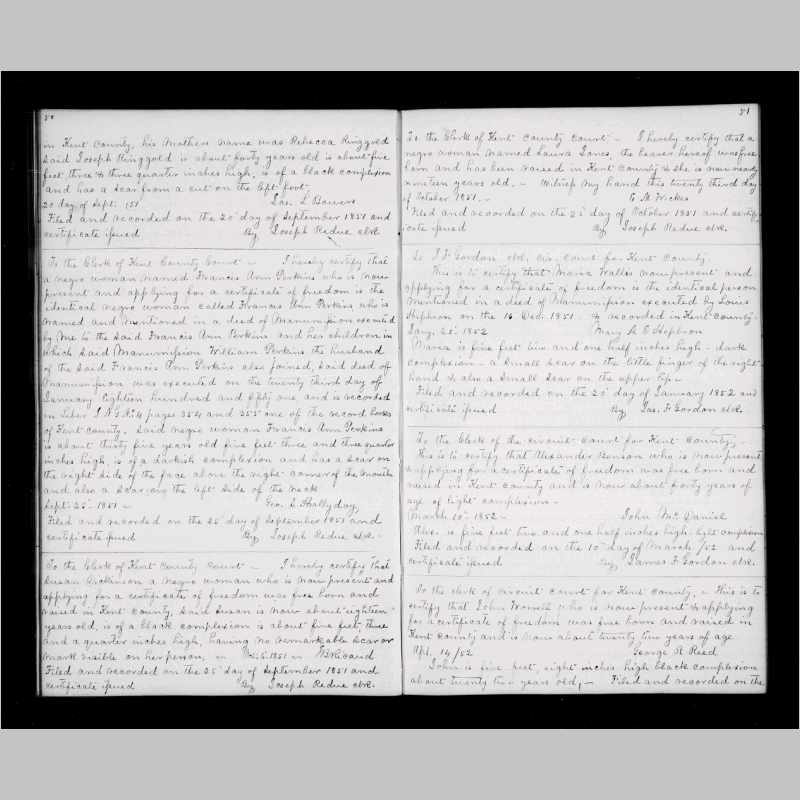 in Kent County, his mothers name was Rebecca Ringgold
said Joseph Ringgold is about forty years old is about five
feet three & three quarter inches high, is of a black complexion
and has a scar from a cut on the left foot.
20 day of Sept. 151 Jas. L Bowers
Filed and recorded on the 20 day of September 1851 and
certificate issued By Joseph Redue clrk.
To the Clerk of Kent County Court – I hereby certify that
a negro woman named Francis Ann Perkins who is now
present and applying for a certificate of freedom is the
identical negro woman called Francis Ann Perkins who is
named and mentioned in a deed of Manumission executed
by me to the said Francis Ann Perkins and her children in
which said Manumission William Perkins the husband
of the said Francis Ann Perkins also joined, said deed of
Manumission was executed on the twenty third day of
January Eighteen hundred and fifty one and is recorded
in Liber J N G pages 354 and 255 one of the record books
of Kent County. Said negro woman Francis Ann Perkins
is about thirty five years old five feet three and three quarter
inches high, is of a darkish complexion and has a scar on
the right side of the face above the right corner of the mouth
and also a scar on the left side of the neck
Sept. 25 1851 – Geo. S. Hollyday,
Filed and recorded on the 25 day of September 1851 and
certificate issued By Joseph Redue clrk.
To the Clerk of Kent County Court – I hereby certify that
Susan a negro woman who is now present and
applying for a certificate of freedom was free born and
raised in Kent County, said Susan is now about eighteen
years old, is of a black complexion is about five feet, three
and a quarter inches high, having no remarkable scar or
mark visible on her person, 1851
Filed and recorded on the 25 day of September 1851 and
certificate issued By Joseph Redue clrk.
51
To the Clerk of Kent County Court – I hereby certify that a
negro woman named Laura Jones, the bearer hereof was free
born and has been raised in Kent County & she is now nearly
nineteen years old. – Witness my hand this twenty third day
of October 1851. – C. M. Wickes
Filed and recorded on the 25 day of October 1851 and certif-
icate issued By Joseph Redue clrk.
To J. F. Gordon clk. Cir. Court for Kent County.
This is to certify that Maria Wallis now present and
applying for a certificate of freedom is the identical person
mentioned in a deed of Manumission executed by Louis
Hepbron on the 16 Dec. 1851. & recorded in Kent County.
Jany. 20 1852 Mary A. E Hepbron
Maria is five feet two and one half inches high – dark
complexion – a small scar on the little finger of the right
hand & also a small scar on the upper lip –
Filed and recorded on the 20 day of January 1852 and
certificate issued By Jas. F Gordon clrk.
To the Clerk of the circuit court for Kent County, –
This is to certify that Alexander Benson who is now present
& applying for a certificate of freedom was free born and
raised in Kent County and is now about forty years of
age of light complexion –
March 10 1852 – John McDaniel
Alex. is five feet two and one half inches high, light complexion
Filed and recorded on the 10 day of March /52 and
certificate issued By James F Gordon clrk.
To the clerk of circuit court for Kent County, – This is to
certify that John Worrell who is now present & applying
for a certificate of freedom was free born and raised in
Kent County and is now about twenty two years of age
Apl. 14/52 George A Reed
John is five feet, eight inches high black complexion
about twenty two years old, – Filed and recorded on the